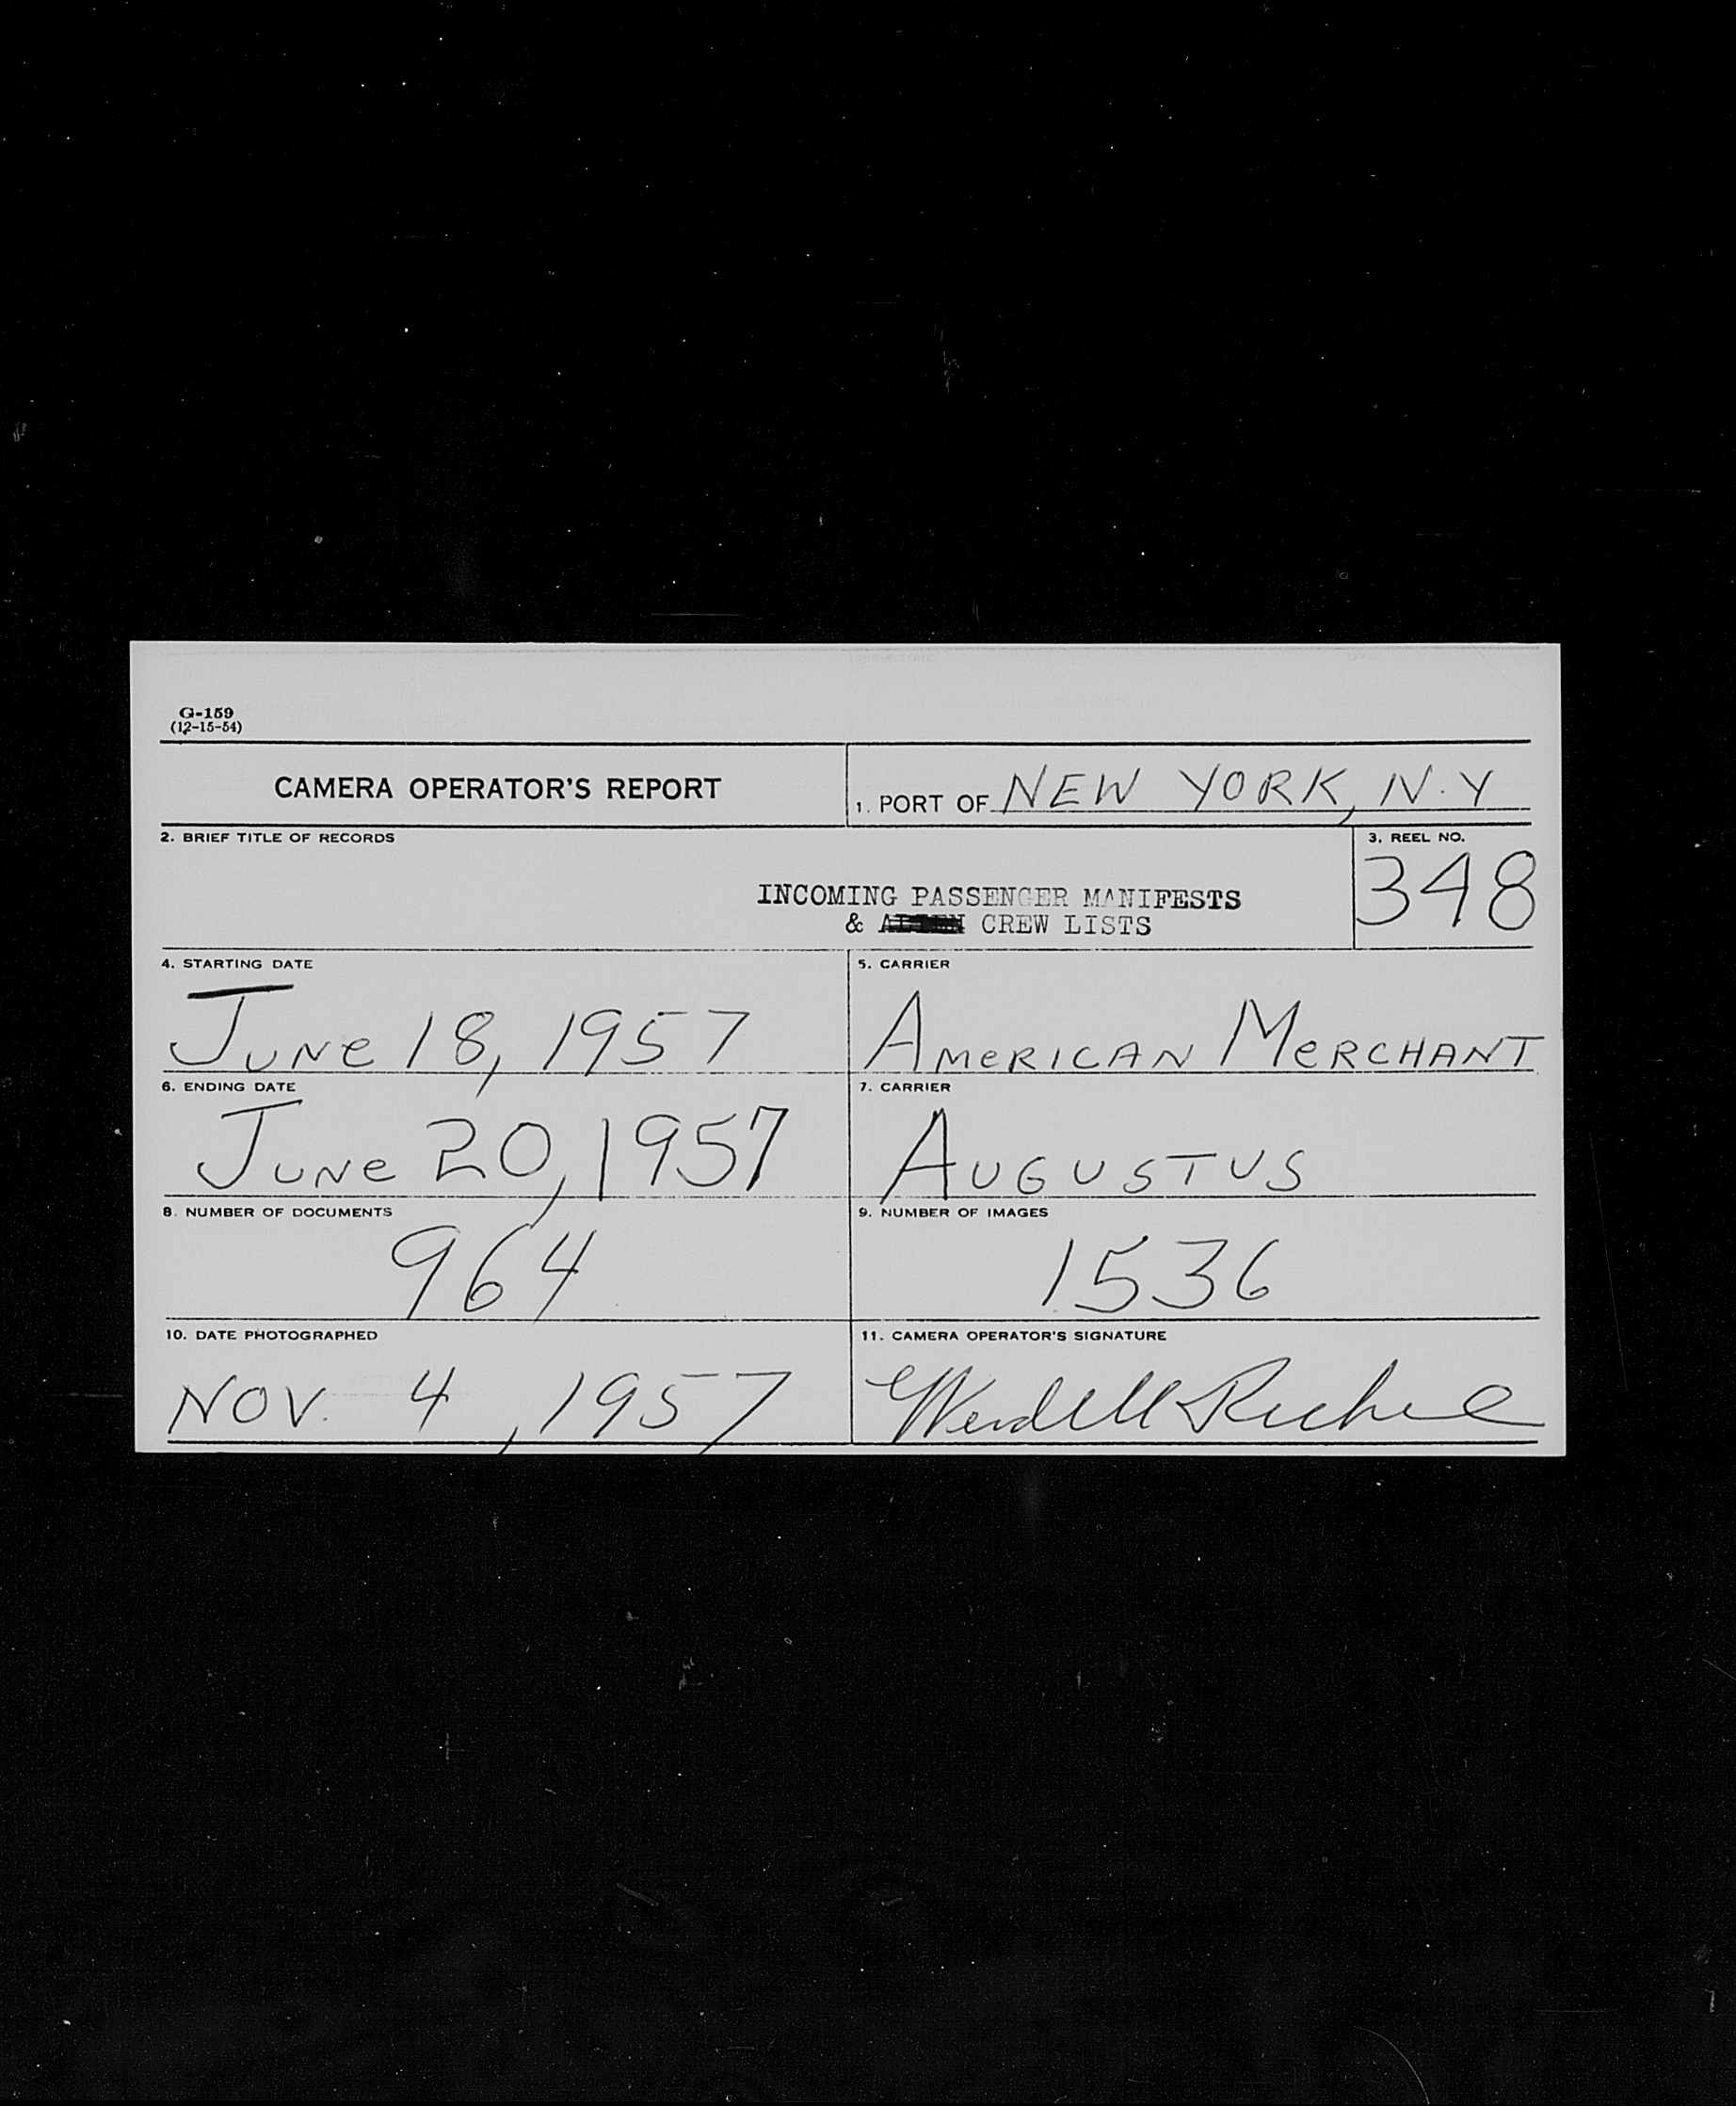 G-159
(12-15-54)
CAMERA OPERATOR'S REPORT
1. PORT OF NEW YORK, N.Y
2. BRIEF TITLE OF RECORDS
3. REEL NO.
348
INCOMING PASSENGER MANIFESTS
& CREW LISTS
4. STARTING DATE
June 18, 1957
5. CARRIER
AMERICAN MERCHANT
6. ENDING DATE
June 20, 1957
7. CARRIER
AUGUSTUS
8. NUMBER OF DOCUMENTS
964
9. NUMBER OF IMAGES
1536
10. DATE PHOTOGRAPHED
NOV. 4, 1957
11. CAMERA OPERATOR'S SIGNATURE
Wendell